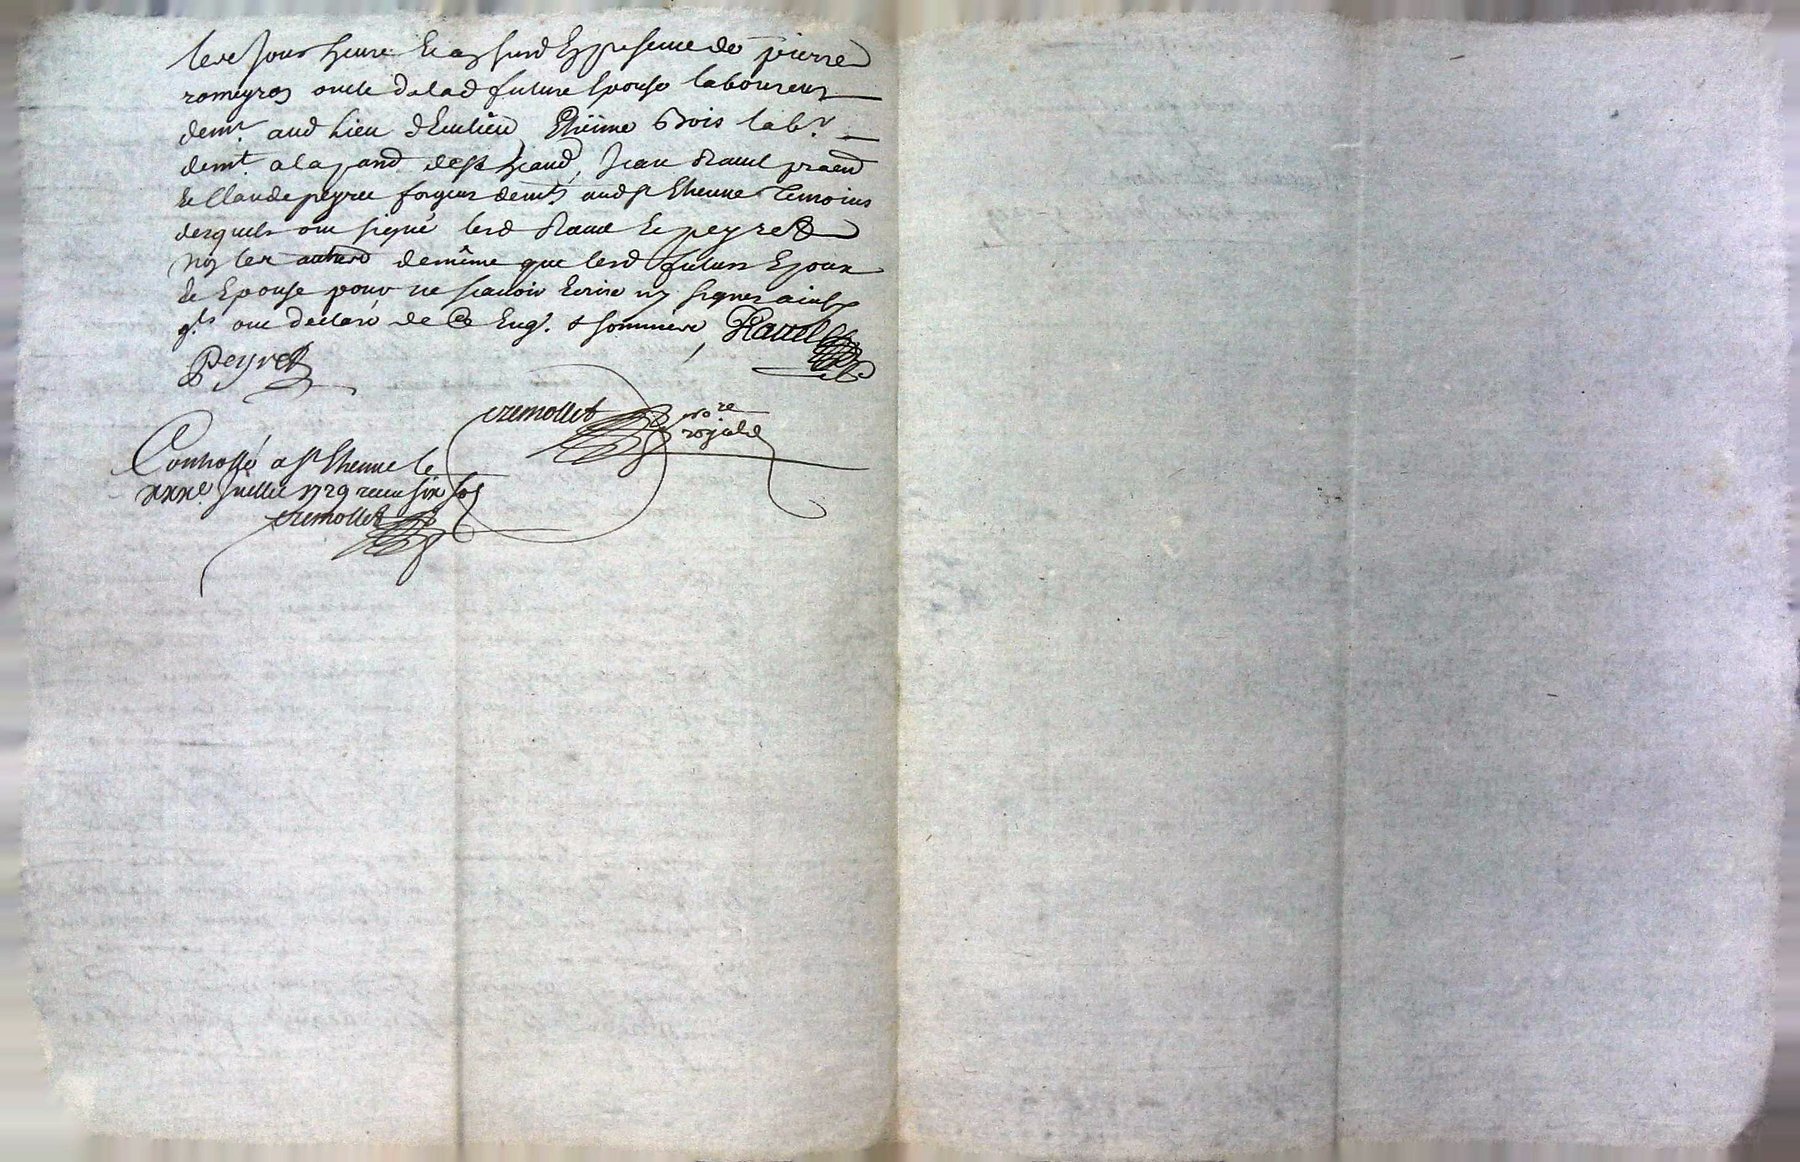 lesd Jour heure Et an susd En presence de pierre
romeyron oncle de lad future Epouse laboureur
demt aud Lieu Etienne Bois labr
demt a la jeand, Jean Ravel praud
Et Claude peyret forgeur demts aud st Etienne Temoins
desquels ont signé lesd Ravel Et peyret
Non les autres de même que lesd futurs Epoux
Et Epouse pour ne scavoir Ecrire ny signer ainsy
qls ont declaré de ce Enqs & sommés Ravel
Peyret
cremollet nore
royald
Controllé a st Etienne le
xxxe Juillet 1729 receu six sols
cremollet